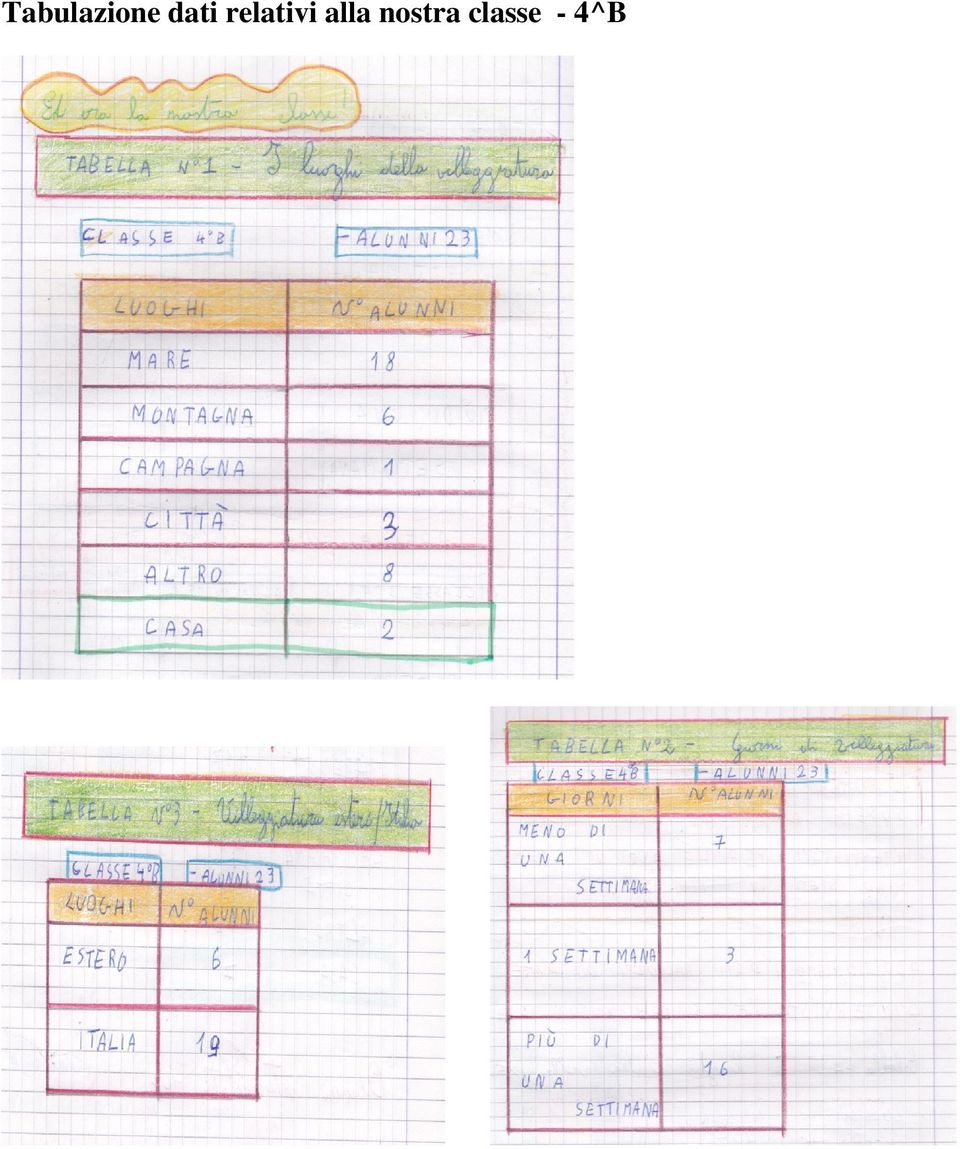 Tabulazione dati relativi alla nostra classe - 4^B
Ed ora la nostra classe!
TABELLA N°1 - I luoghi della villeggiatura
CLASSE 4°B - ALUNNI 23
LUOGHI N° ALUNNI
MARE 18
MONTAGNA 6
CAMPAGNA 1
CITTÀ 3
ALTRO 8
CASA 2
TABELLA N°3 - Villeggiatura estero/Italia
CLASSE 4°B - ALUNNI 23
LUOGHI N° ALUNNI
ESTERO 6
ITALIA 19
TABELLA N°2 - Giorni di villeggiatura
CLASSE 4°B - ALUNNI 23
GIORNI N° ALUNNI
MENO DI 7
UNA
SETTIMANA
1 SETTIMANA 3
PIÙ DI
UNA 16
SETTIMANA